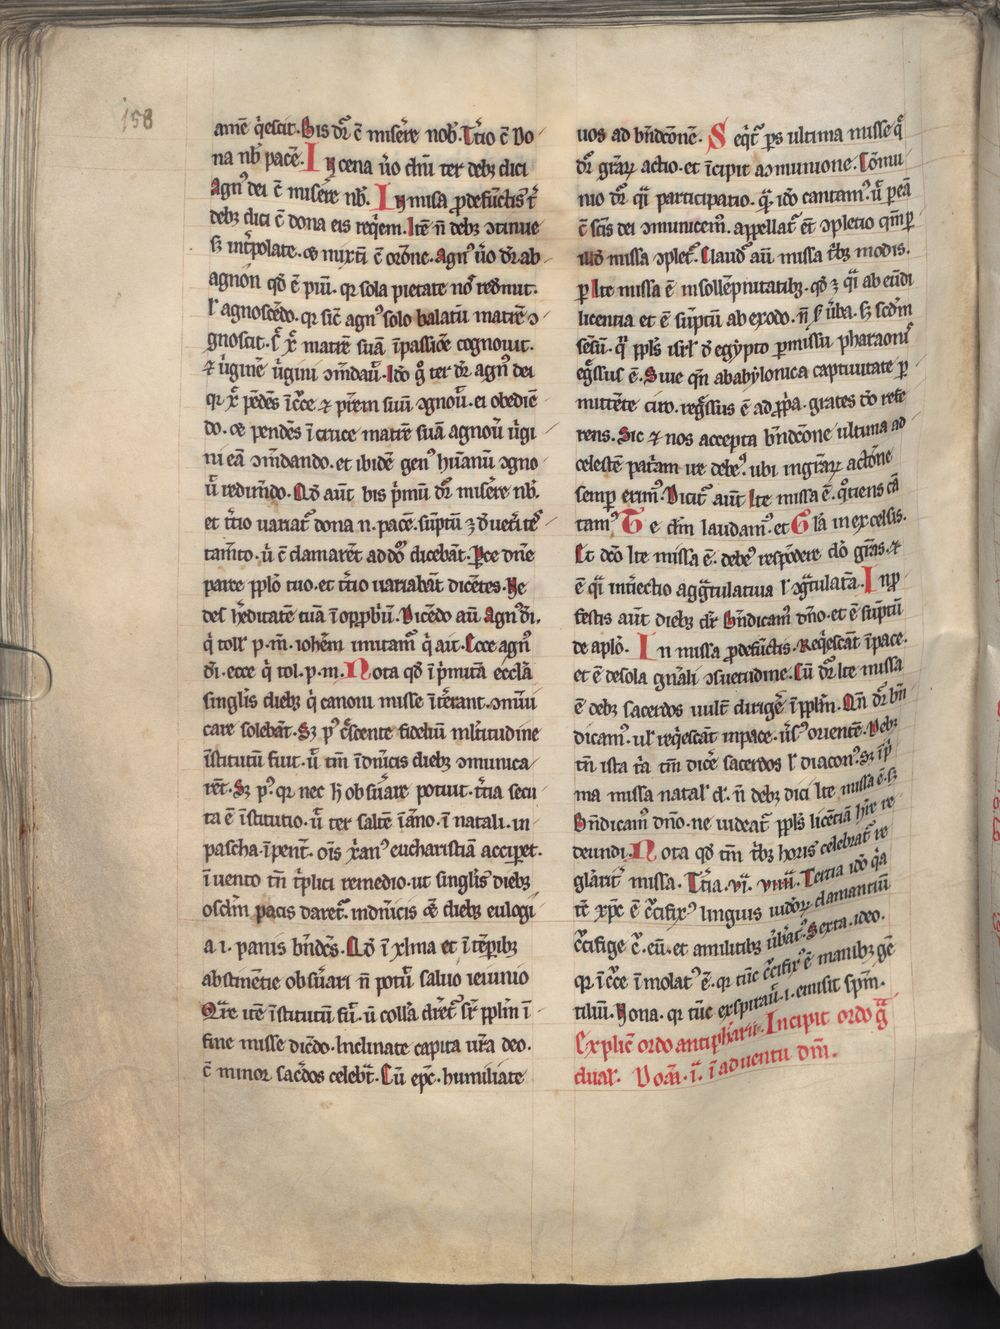 158
amē q̇escit. Bis dr̄ ē misēre nob̄. Tͥcio ē Do
na nb̄ pacē. In cena ṽo dn̄i ter debꝫ dici
Agnꝰ dei ē misēre nb̄. In missa ꝓ defūctis tͥ
debꝫ dici ē dona eis req̇em. Itē n̄ debꝫ ↄtinue
sꝫ int̄polate. ↄē mixtī ē orōne. Agnꝰ ṽo dr̄ ab
agnon qd̄ ē piū. qr sola pietate nos̄ redimit.
ł agnoscēdo. qr sic̄ agnꝰ solo balatu matrē ↄ
gnoscit. sͥ x̄ matrē suā ī passiōe cognouit.
⁊ ũginē ũgini ↄm̄dauͥ. Ido gͦ ter dr̄ agnꝰ dei
qr x̄ pēdēs ī c̄ce ⁊ pr̄em suū ↄgnoũ. ei obediē
do. ↄē pendēs ī cruce matrē suā agnouͥ ũgi
ni eā ↄm̄dando. et ibidē genꝰ hūanū ↄgno
ũ redimēdo. Qd̄ aut̄ bis p̄mū dr̄ misēre nb̄.
et tͥcio uariat᷑ dona n. pacē. sūptū ꝫ d̄ uet̄i tēs
tam̄to. ũ ē clamarēt ad dm̄ dicebāt. Parce dn̄e
parce pplo tuo. et tͥcio uariabāt dicētes. Ne
des h̄editatē tuā ī opprob̄ū. Dicēdo aū Agnꝰ di.
q̇ toll̄ p. m̄. ioh̄em imitam᷑ q̇ ait. Ecce agnꝰ
di. ecce q̇ tol. p. m. Nota qd̄ ī pͥmitiā eccl̄a
singl̄is diebꝫ q̇ canoni misse īt̄erant. ↄmūi
care solebāt. Sꝫ pꝰ cͤscente fidelium ml̄titudine
īstitutū fuit. ũ tm̄ ī dn̄icis diebꝫ ↄmunica
rēt. Sꝫ pꝰ. qr nec h̄ obs̄uare potuit. tͥcia secu
ta ē īstitutio. ũ ter saltē ī āno. ī natali. in
pascha. ī pent̄. oīs xͥanꝰ eucharistiā accip̄et.
īuento tn̄ tͥplici remedio. ut singl̄is diebꝫ
oscl̄m pacis daret᷑. in dn̄icis ↄē diebꝫ eulogi
a .i. panis bn̄des. Qd̄ ī xl̄ma et ī tēp̄ibꝫ
abstinētie obs̄uari n̄ potuͥ saluo ieiunio
Qͣre itē īstitutū fuͥ. ũ coll̄a dr̄et᷑ sr̄ ppl̄m ī
fine misse dicēdo. Inclinate capita ur̄a deo.
ē minor sac̄dos celebͣt. Cū ep̄c. humiliate
uos ad bn̄dcōnē. Seqͥt᷑ ps ultima misse q̄
dr̄ grāꝝ actio. et īcipit a ↄmunione. Cōmu
nio dr̄ qͣi participatio. qͣ ido cantamꝰ. ũ p eā
ē sc̄is dei ↄmunicem᷑. appellat᷑ et̄ ↄpletio qm̄ p
illā missa ↄplet᷑. Claudit᷑ aū missa tͥbꝫ modis.
p Ite missa ē in sollēpnitatibꝫ. qd̄ ꝫ qͣi ab eūdi
licentia et ē sūptū ab exodo. n̄ ſͫ ũba. sꝫ sc̄dm
sēsū. qͣ ppls isr̄l d̄ egypto pmissu pharaonis
eḡssus ē. Siue qn̄ a babylonica captiuitate p
mittēte ciro. reg̃ssus ē ad ꝓpͥa. grates dō refe
rens. Sic ⁊ nos accepta bn̄dcōne ultima ad
celestē patͥam ire debeꝰ. ubi in grāꝝ actōne
semp erimꝰ. Dicit᷑ aut̄ Ite missa ē. q̄tiens cā
tamꝰ Te dm̄ laudamꝰ. et Glā in excelsis.
Et deo Ite missa ē. debeꝰ respōdere do grās. ⁊
ē qͣi int̄iectio aggͣtulatiua ł ↄgͣtulatͣa. In p
festis aut̄ diebꝫ dr̄ Bn̄dicamꝰ dn̄o. et ē sūptū
de aplo. In missa ꝓ defūctis. Req̇escāt ī pace.
et ē de sola gn̄ali ↄsuetudine. Cū dr̄ Ite missa
ē debꝫ sacerdos uult̄ dirig̃e ī ppl̄m. Qn̄ dr̄ bn̄
dicamꝰ. ul̄ req̇escāt in pace. ũsꝰ orientē. Debꝫ
tn̄ ista tͥa tm̄ dic̄e sacerdos ł diaconꝰ. Sꝫ ī pͥ
ma missa natal̄ dn̄. n̄ debꝫ dici Ite missa ē. sꝫ
Bn̄dicamꝰ dn̄o. ne uideat᷑ ppls licētiā hr̄e re
deundi. Nota qd̄ tm̄ tͥbꝫ horis celebrat᷑ re
glarit᷑ missa. Tͥcia. vi. viiii. Tercia ido q̇a
tē xp̄c ē cͨifixꝰ linguis iudoꝝ clamantiū
cͨifige cͨ. eū. et a militibꝫ ũbatꝰ. Sexta. ideo.
qr ī cͨce īmolatꝰ ē. qr tūc cͨifixꝰ ē manibꝫ gē
tiliū. Nona. qr tūc exspirauͥ .i. emisit spm̄.
Explic̄ ordo antiph̄arii. Incipit ordo gͣ
dual. Dom̄. i. ī aduentu dm̄.